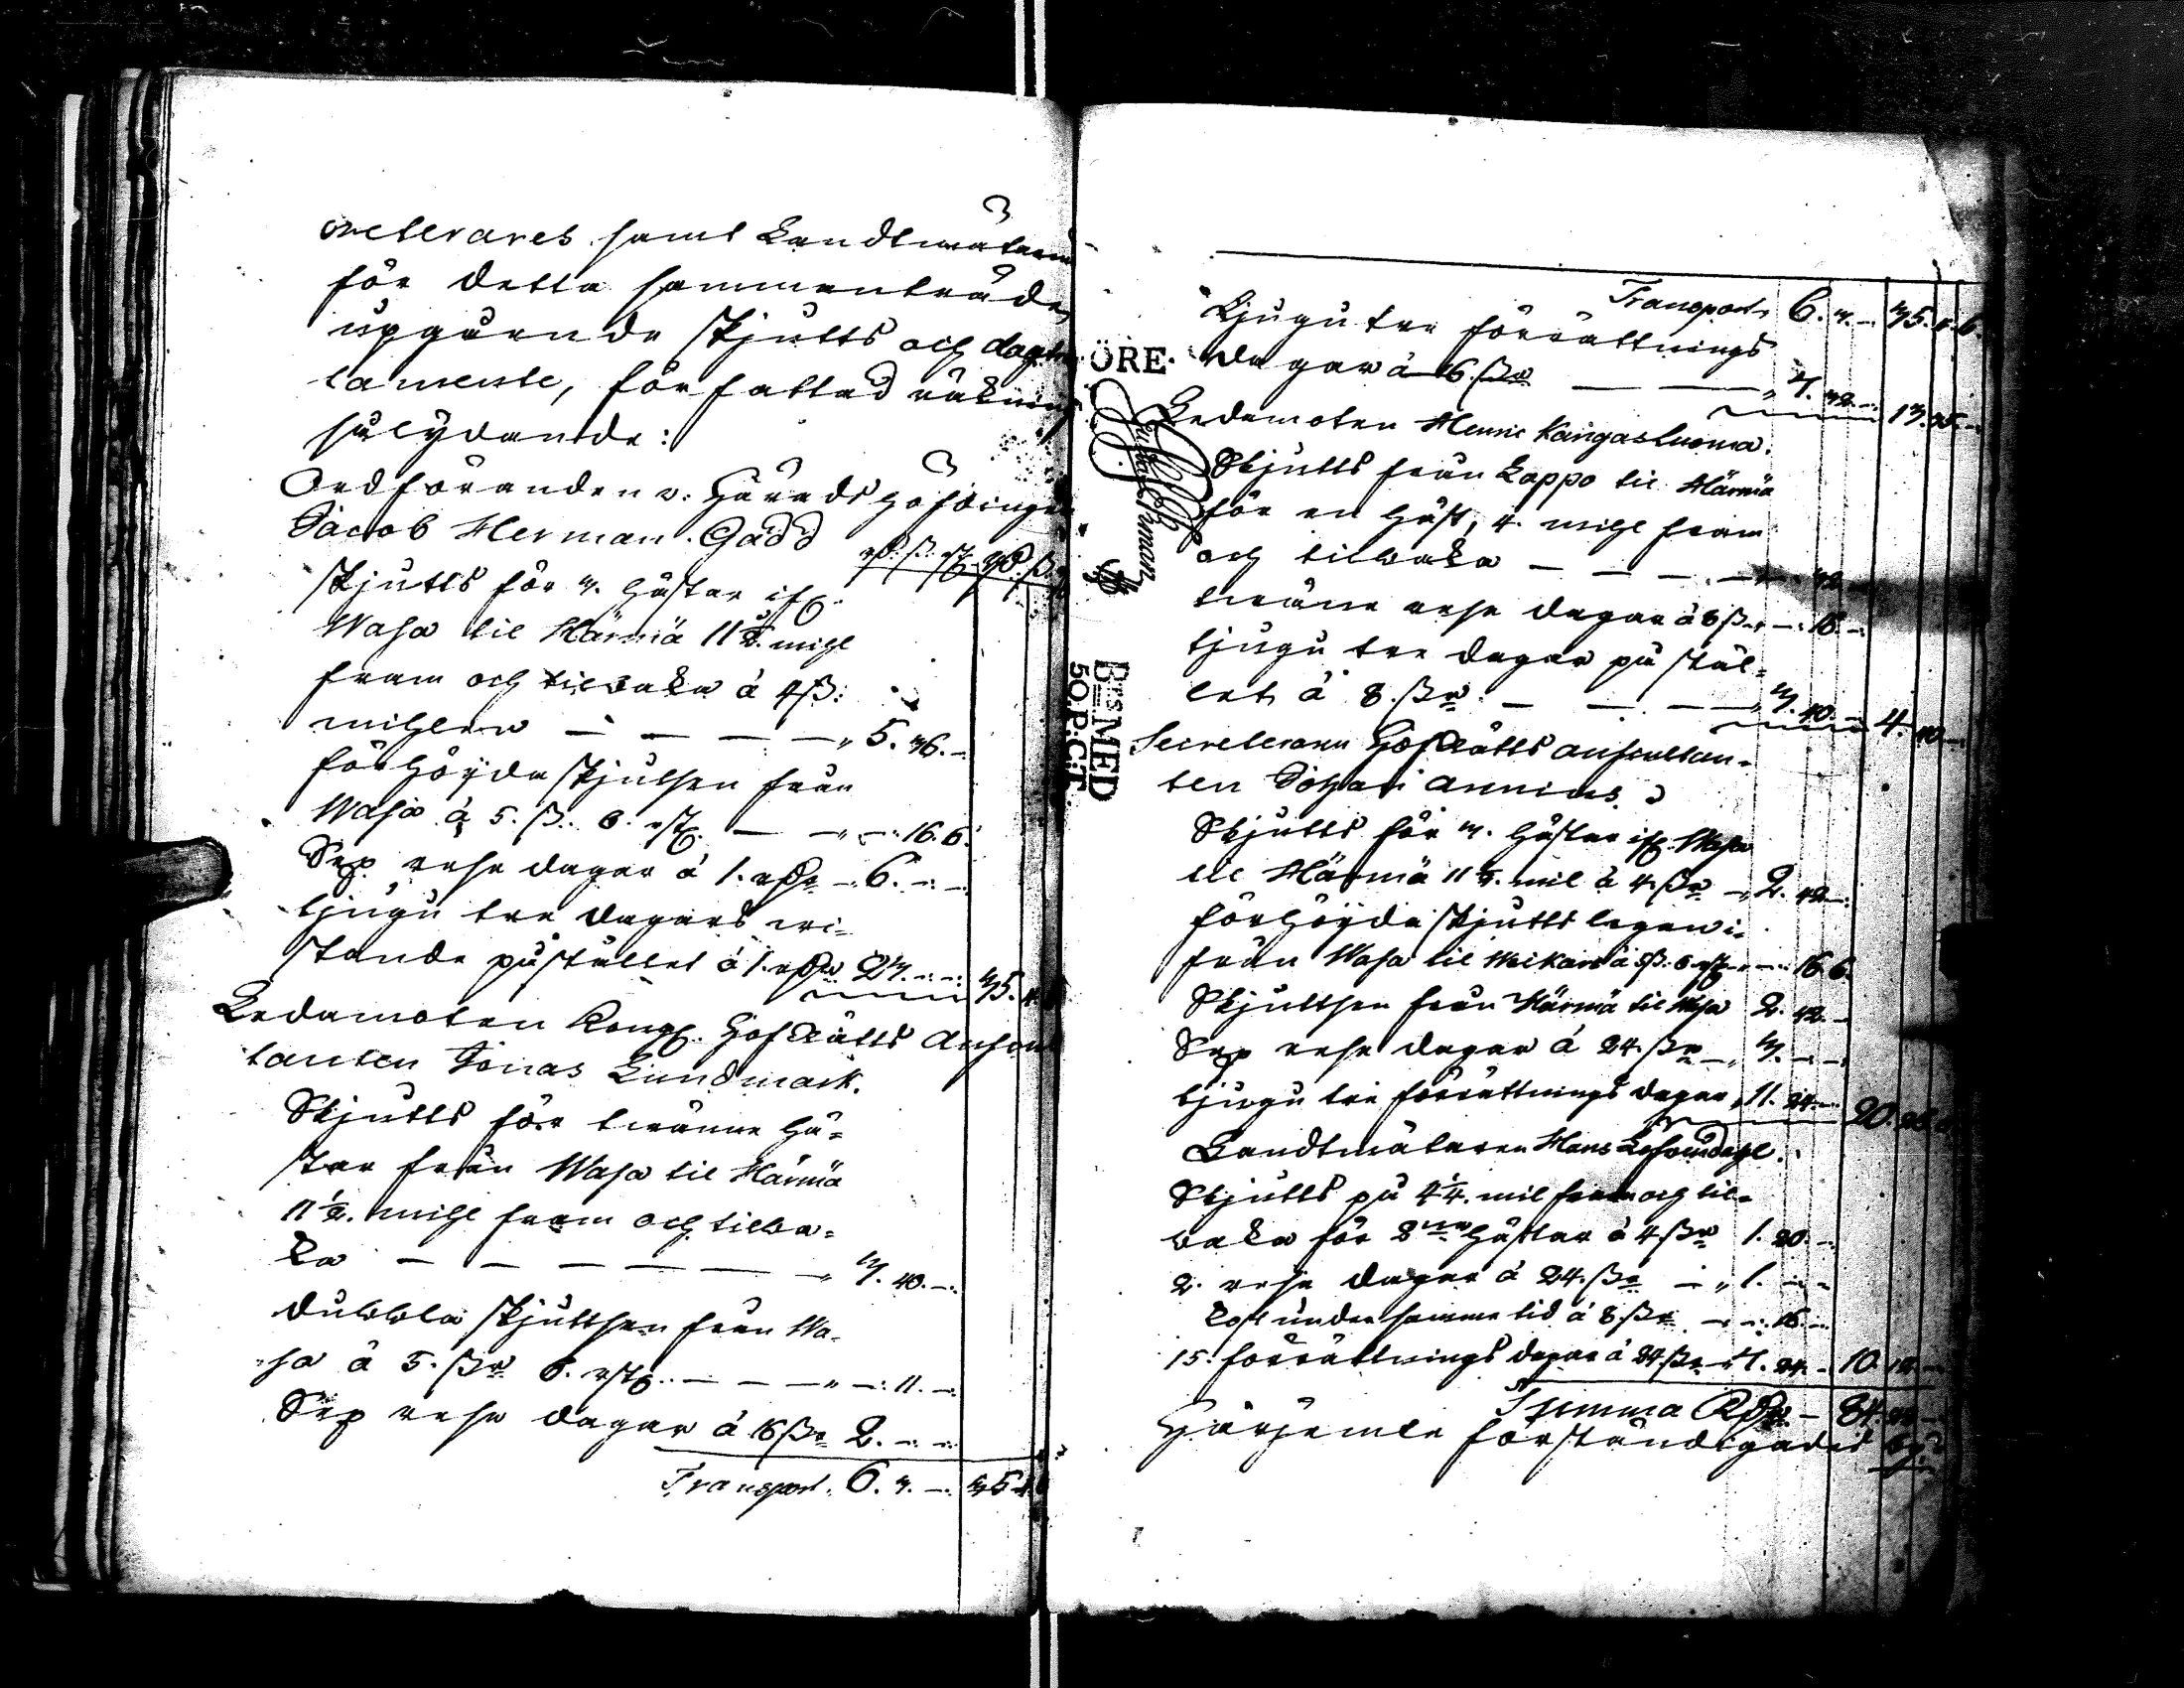 creterares samt Landtmätarens
för detta sammanträde,
upgående skjutts och dagtrac
tamente, författad räkning
sålydande:
Ordföranden v: Häradshöfdingen
Jacob Herman Gadd
Rd. ß. rst. Rd. ß.
skjutts för 3. hästar ifr.
Wasa til Härmä 11½ mihl
fram och tilbaka á 4ß:
mihlen — — — — 5. 36. —
förhöÿda skjutsen från
Wasa á 5. ß. 6. rst. — — — 16. 6.
Sex rese dagar á 1. rdr — 6. — —
tjugu tre dagars wi-
stande på stället á 1. rdr 23. — — 35. 4. 6
Ledamoten Kongl. HofRätts Auscul
tanten Jonas Lundmark.
Skjutts för twänne hä-
star från Wasa til Härmä
11½. mihl fram och tilba-
ka — — — — — 3. 40. —
dubbla skjuttsen från Wa-
sa á 5. ßr 6. rst. — — — 11. —
Sex rese dagar á 16 ßr 2. — —
Transport. 6. 3. — 35. 4. 6
Transport 6. 3. — 35. 4. 6.
Tjugu tre förrättnings
dagar á 16. ßr — — 7. 32. — 13. 35. —
ÖRE
Ledamoten Henric Kangasluoma.
Skjutts från Lappo til Härmä
för en häst, 4. mihl fram
och tilbaka — — — — 32 —
twänne rese dagar á 8 ßr — 16. —
tjugu tre dagar på stäl-
let á 8. ßr — — — 3. 40. — 4. 40. —
Bns MED
50. P:C:T
Secreteraren HofRätts auscultan-
ten Johan Annius
Skjutts för 3. hästar ifr. Wasa
til Härmä 11½. mil á 4. ßr — 2. 42. —
förhöÿda skjutts legan i-
från Wasa til Weikars á 5ß. 6 rst. — — 16. 6.
Skjuttsen från Härmä til Wasa 2. 42. —
Sex rese dagar á 24. ßr — 3. — —
tjugu tre förrättnings dagar 11. 24. — 20. 28. 6
Landtmätaren Hans
Skjutts på 4¼. mil fram och til-
baka för 2ne hästar á 4 ßr 1. 20. —
2. rese dagar á 24. ßr — 1. — —
Kost under samma tid á 8 ßr — — 16. —
15. förrättnings dagar á 24 ßr — 7. 24. — 10. 12. —
Summa Rdr — 84. —
Härjemte förständigades